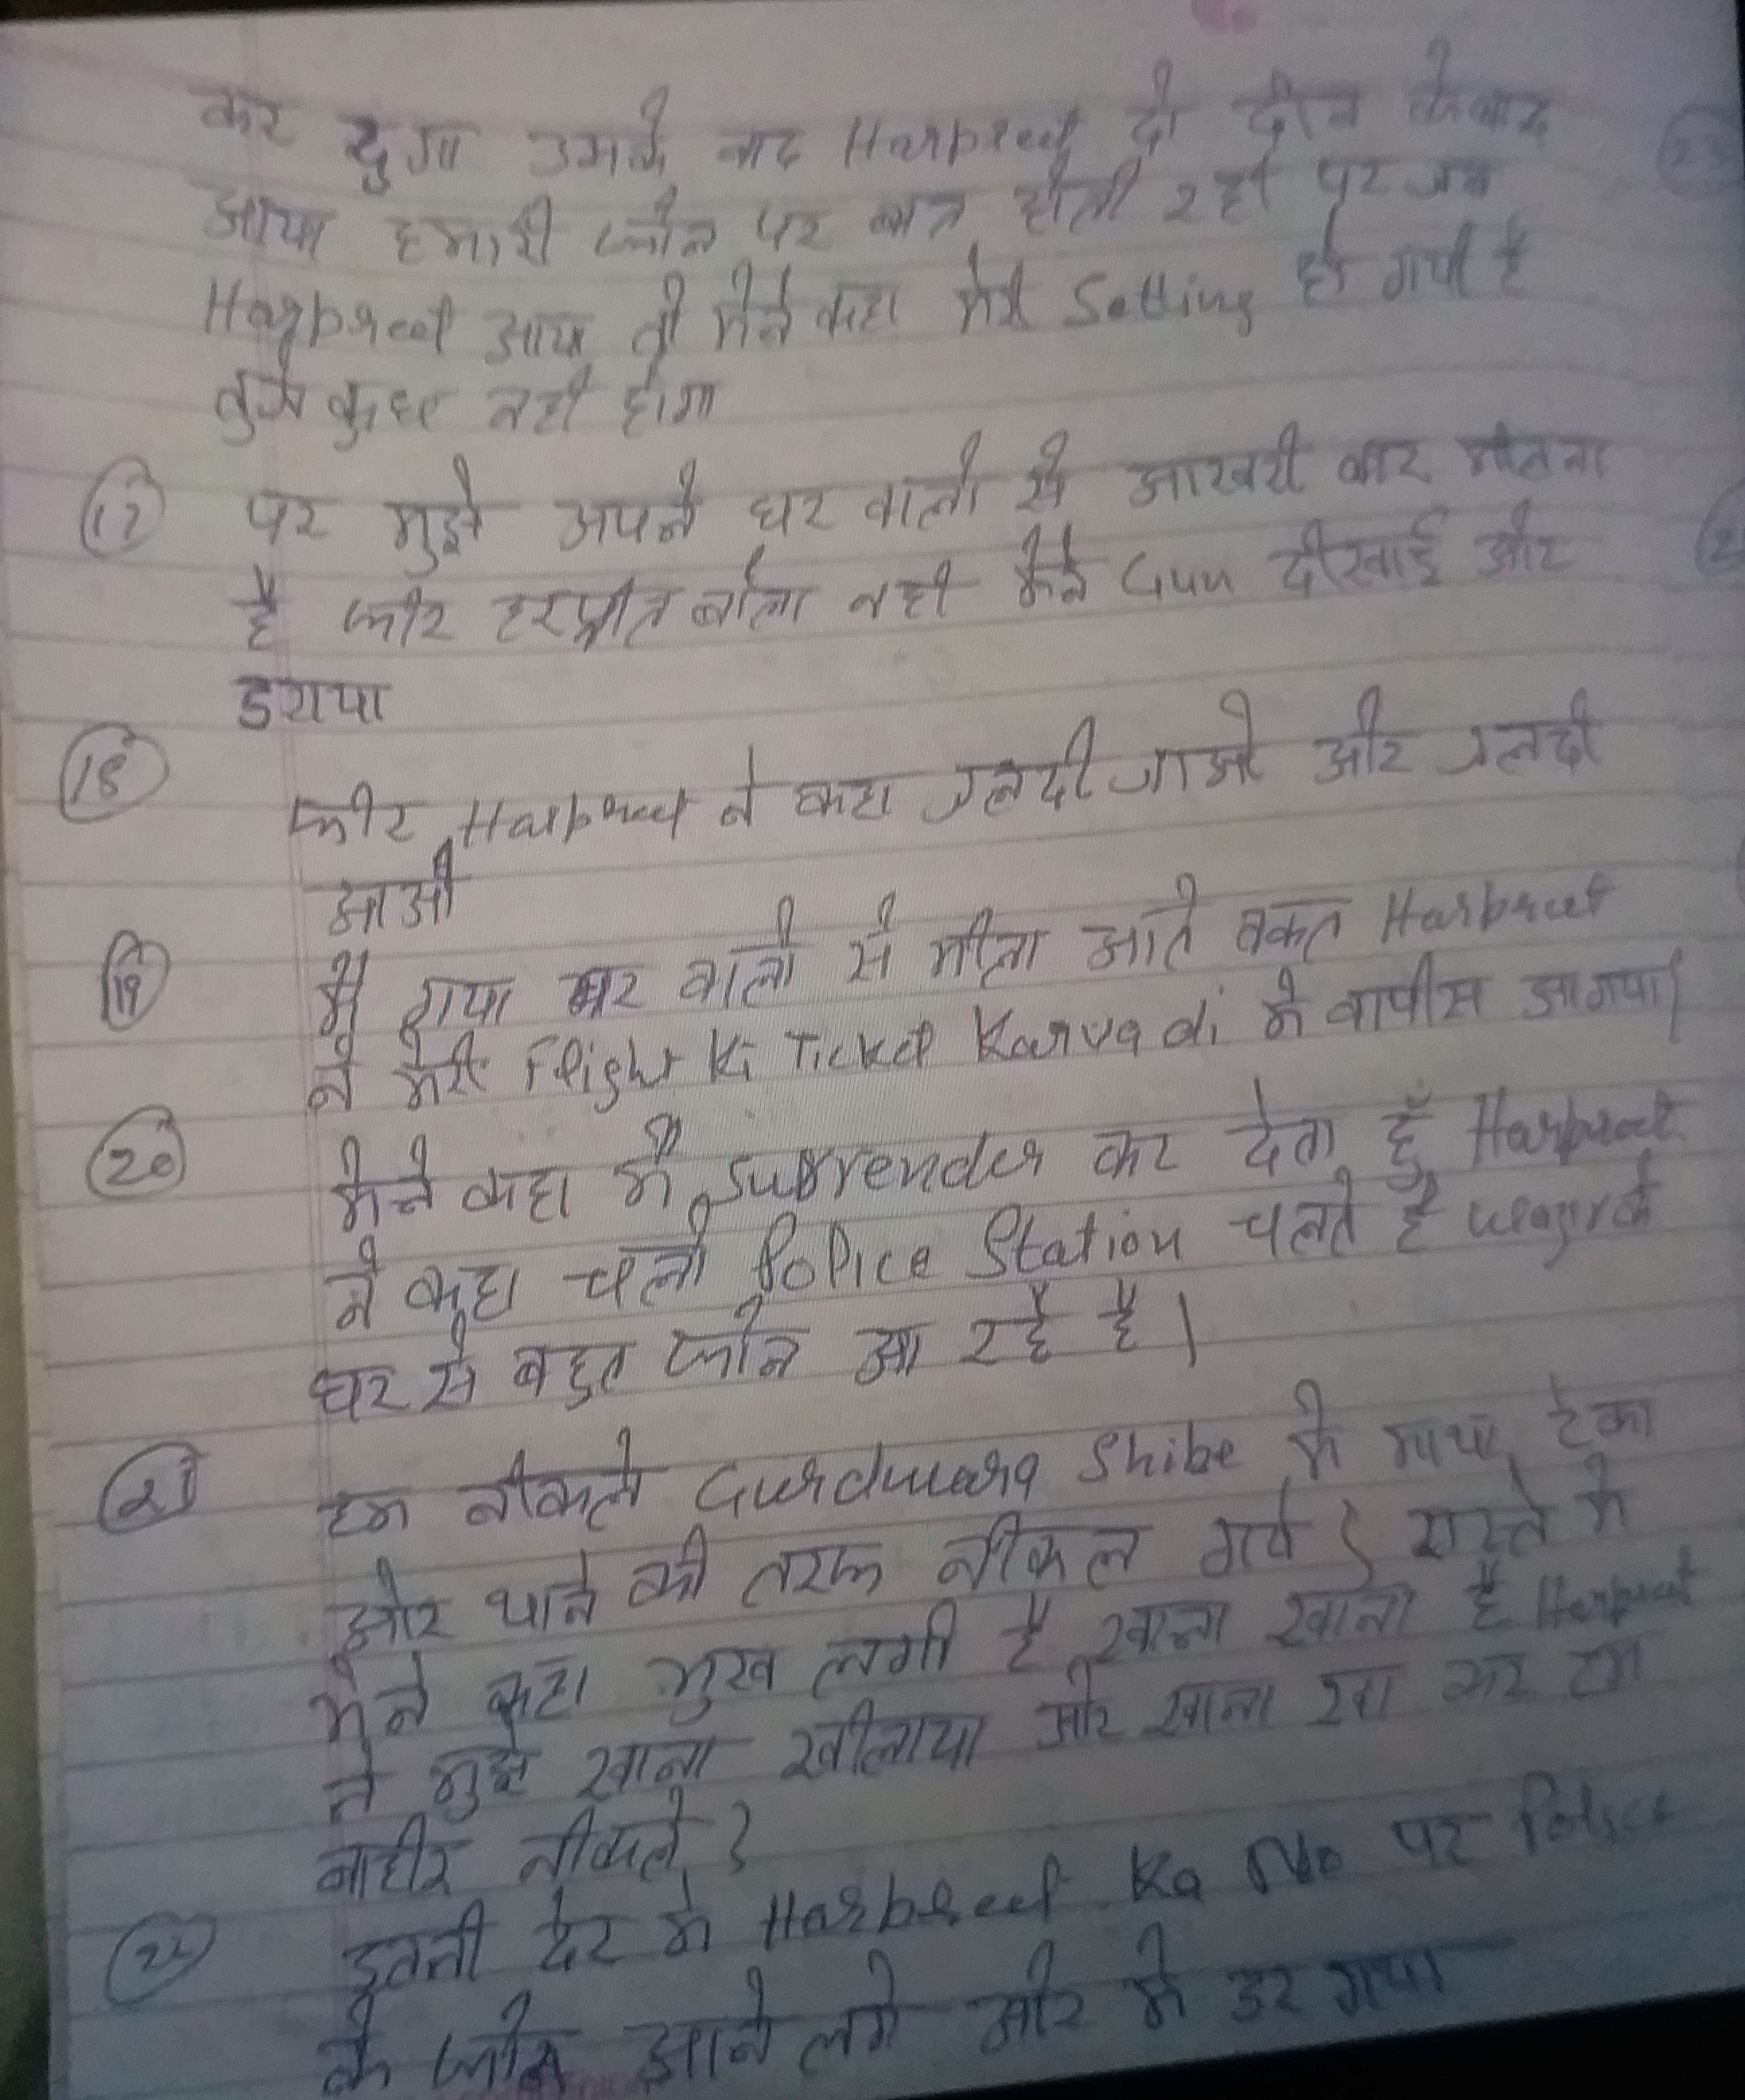 कर दुगा उसके बाद Harpreet दो दीन के बाद
आया हमारी फोन पर बात होती रही पर जब
Harpreet आया तो मैने कहा मेरी Setting हो गयी है
तुझे कुछ नही होगा
(17) पर मुझे अपने घर वालो से आखरी बार मीलना
है फीर हरप्रीत बोला नही मैने Gun दीखाई और
डराया
(18) फीर Harpreet ने कहा जलदी जाओ और जलदी
आओ
(19) मै गया घर वालो से मीला आते वकत Harpreet
ने मेरी Flight Ki Ticket Karvadi मे वापीस आगया।
(20) मैने कहा मै Surrender कर देता हुँ Harpreet
ने कहा चलो Police Station चलते है
घर से बहुत फोन आ रहे है।
(21) हम नीकले Gurdwara Shibe मे माथा टेका
और थाने की तरफ नीकल गये। रास्ते मे
मैने कहा भुख लगी है खाना खाना है Harpreet
ने मुझे खाना खीलाया और खाना खा कर हम
बाहीर नीकले।
(22) इतनी देर मे Harpreet Ka No पर Police
के फोन आने लगे और मे डर गया